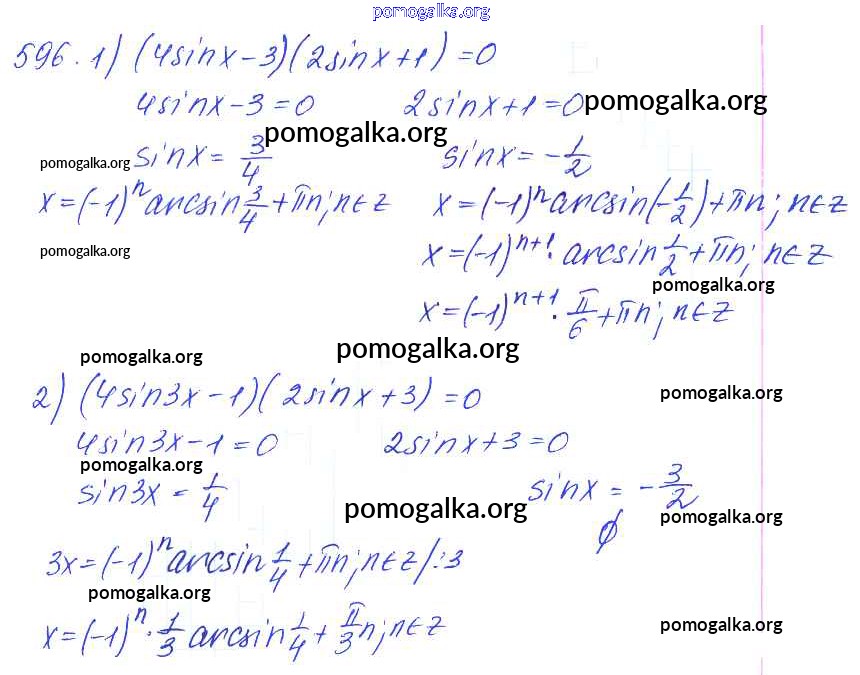 pomogalka.org
596. 1) (4sinx-3)(2sinx+1)=0
4sinx-3=0 2sinx+1=0 pomogalka.org
pomogalka.org
pomogalka.org sinx= 3/4 sinx=-1/2
x=(-1)^n arcsin 3/4+πn; n∈Z x=(-1)^n arcsin(-1/2)+πn; n∈Z
pomogalka.org x=(-1)^n+1· arcsin 1/2+πn; n∈Z
pomogalka.org
x=(-1)^n+1· π/6+πn; n∈Z
pomogalka.org pomogalka.org
2) (4sin3x-1)(2sinx+3)=0 pomogalka.org
4sin3x-1=0 2sinx+3=0
pomogalka.org
sin3x = 1/4 sinx = -3/2
pomogalka.org pomogalka.org
∅
3x=(-1)^n arcsin 1/4+πn; n∈Z/:3
pomogalka.org
x=(-1)^n· 1/3 arcsin 1/4+ π/3 n; n∈Z pomogalka.org